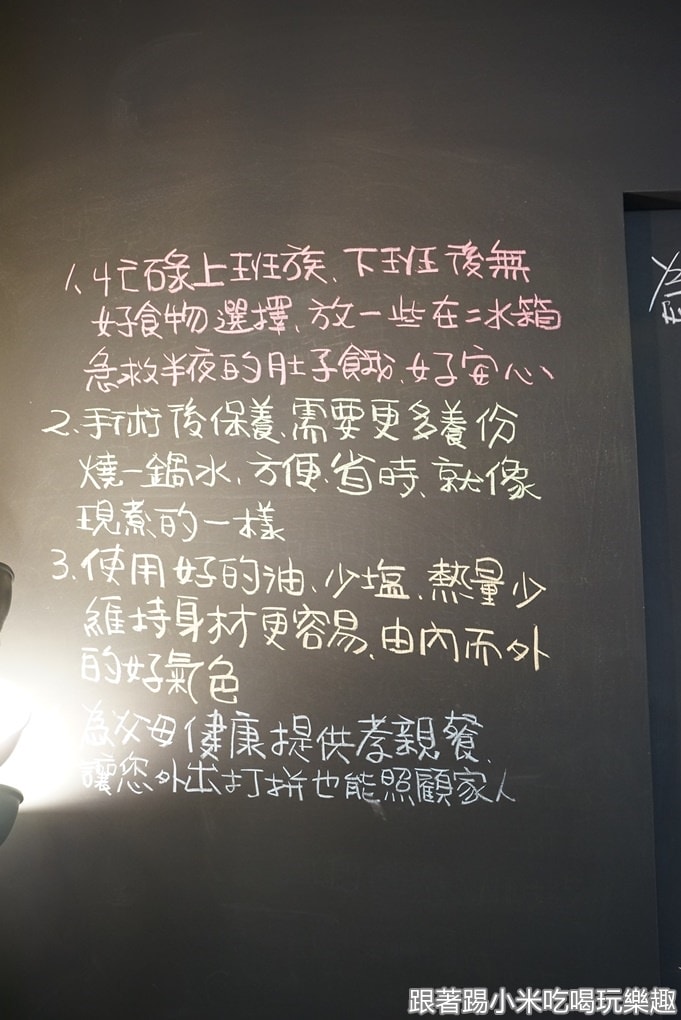 1、忙碌上班族、下班後無
好食物選擇、放一些在冰箱
急救半夜的肚子餓、好安心
2、手術後保養、需要更多養份
燒一鍋水、方便、省時、就像
現煮的一樣
3、使用好的油、少塩、熱量少
維持身材更容易、由內而外
的好氣色
為父母健康提供孝親餐、
讓您外出打拼也能照顧家人
為
跟著踢小米吃喝玩樂趣